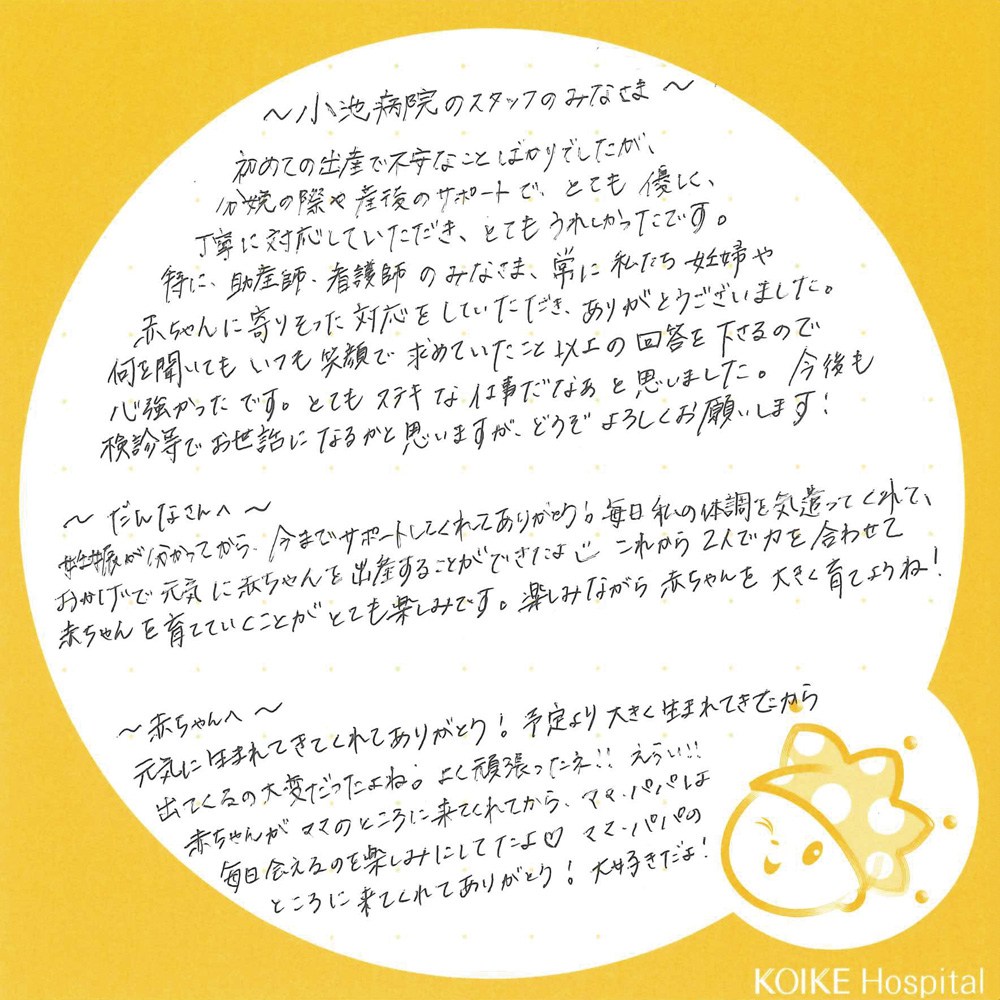 ～小池病院のスタッフのみなさま～
初めての出産で不安なことばかりでしたが、
分娩の際や産後のサポートで、とても優しく、
丁寧に対応していただき、とてもうれしかったです。
特に、助産師、看護師のみなさま、常に私たち妊婦や
赤ちゃんに寄りそった対応をしていただき、ありがとうございました。
何を聞いてもいつも笑顔で求めていたこと以上の回答を下さるので
心強かったです。とてもステキな仕事だなあと思いました。今後も
検診等でお世話になるかと思いますが、どうぞよろしくお願いします！
～だんなさんへ～
妊娠が分かってから、今までサポートしてくれてありがとう！毎日私の体調を気遣ってくれて、
おかげで元気に赤ちゃんを出産することができたよ これから2人で力を合わせて
赤ちゃんを育てていくことがとても楽しみです。楽しみながら赤ちゃんを大きく育てようね！
～赤ちゃんへ～
元気に生まれてきてくれてありがとう！予定より大きく生まれてきたから
出てくるの大変だったよね。よく頑張ったネ!!えらい!!
赤ちゃんがママのところに来てくれてから、ママ・パパは
毎日会えるのを楽しみにしてたよ♡ ママ・パパの
ところに来てくれてありがとう！大好きだよ！
KOIKE Hospital